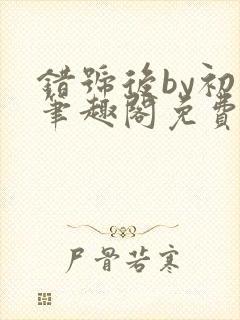 錯號後by初
筆趣閣免費
尸骨若寒